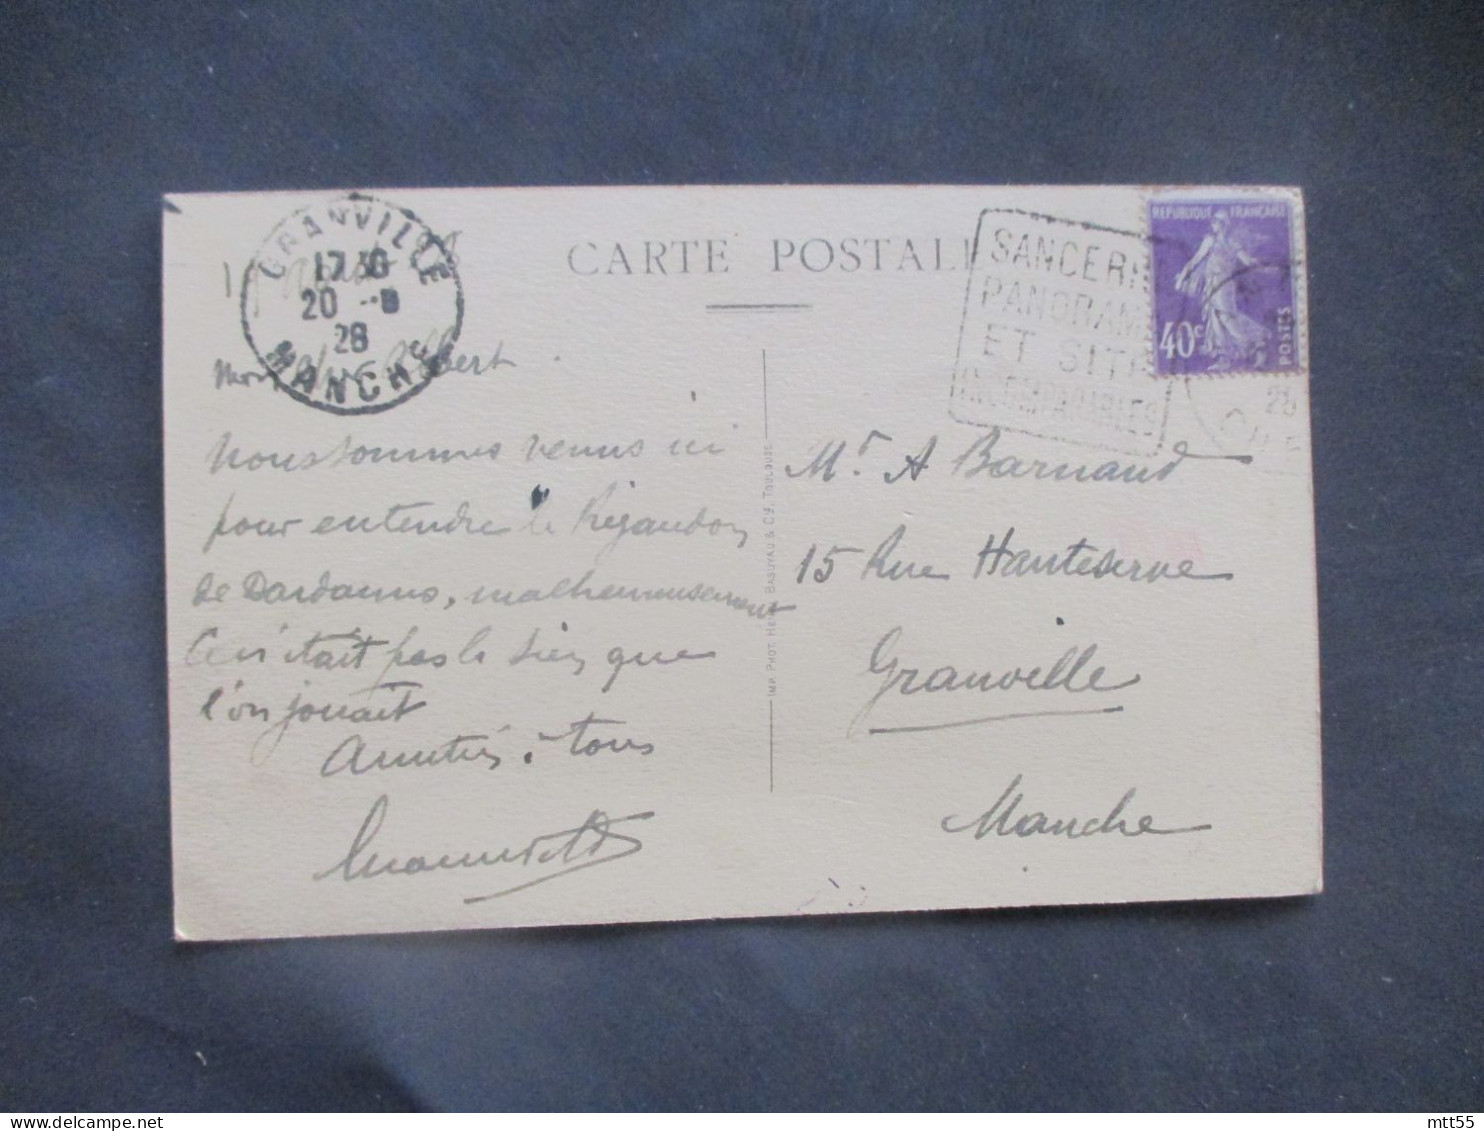 CARTE POSTALE
GRANVILLE
17 30
20 -8
28
MANCHE
SANCERRE
PANORAMA
ET SITES
INCOMPARABLES
REPUBLIQUE FRANÇAISE
40c
POSTES
Mon Albert
Nous sommes venus ici
pour entendre le Rigaudon
de Dardanus, malheureusement
Ce n'était pas le sien que
l'on jouait
Amitiés à tous
Mr A Barnaud
15 Rue Hauteserve
Granville
Manche
IMP. PHOT. HENRI BASUYAU & Cie, TOULOUSE
mtt55